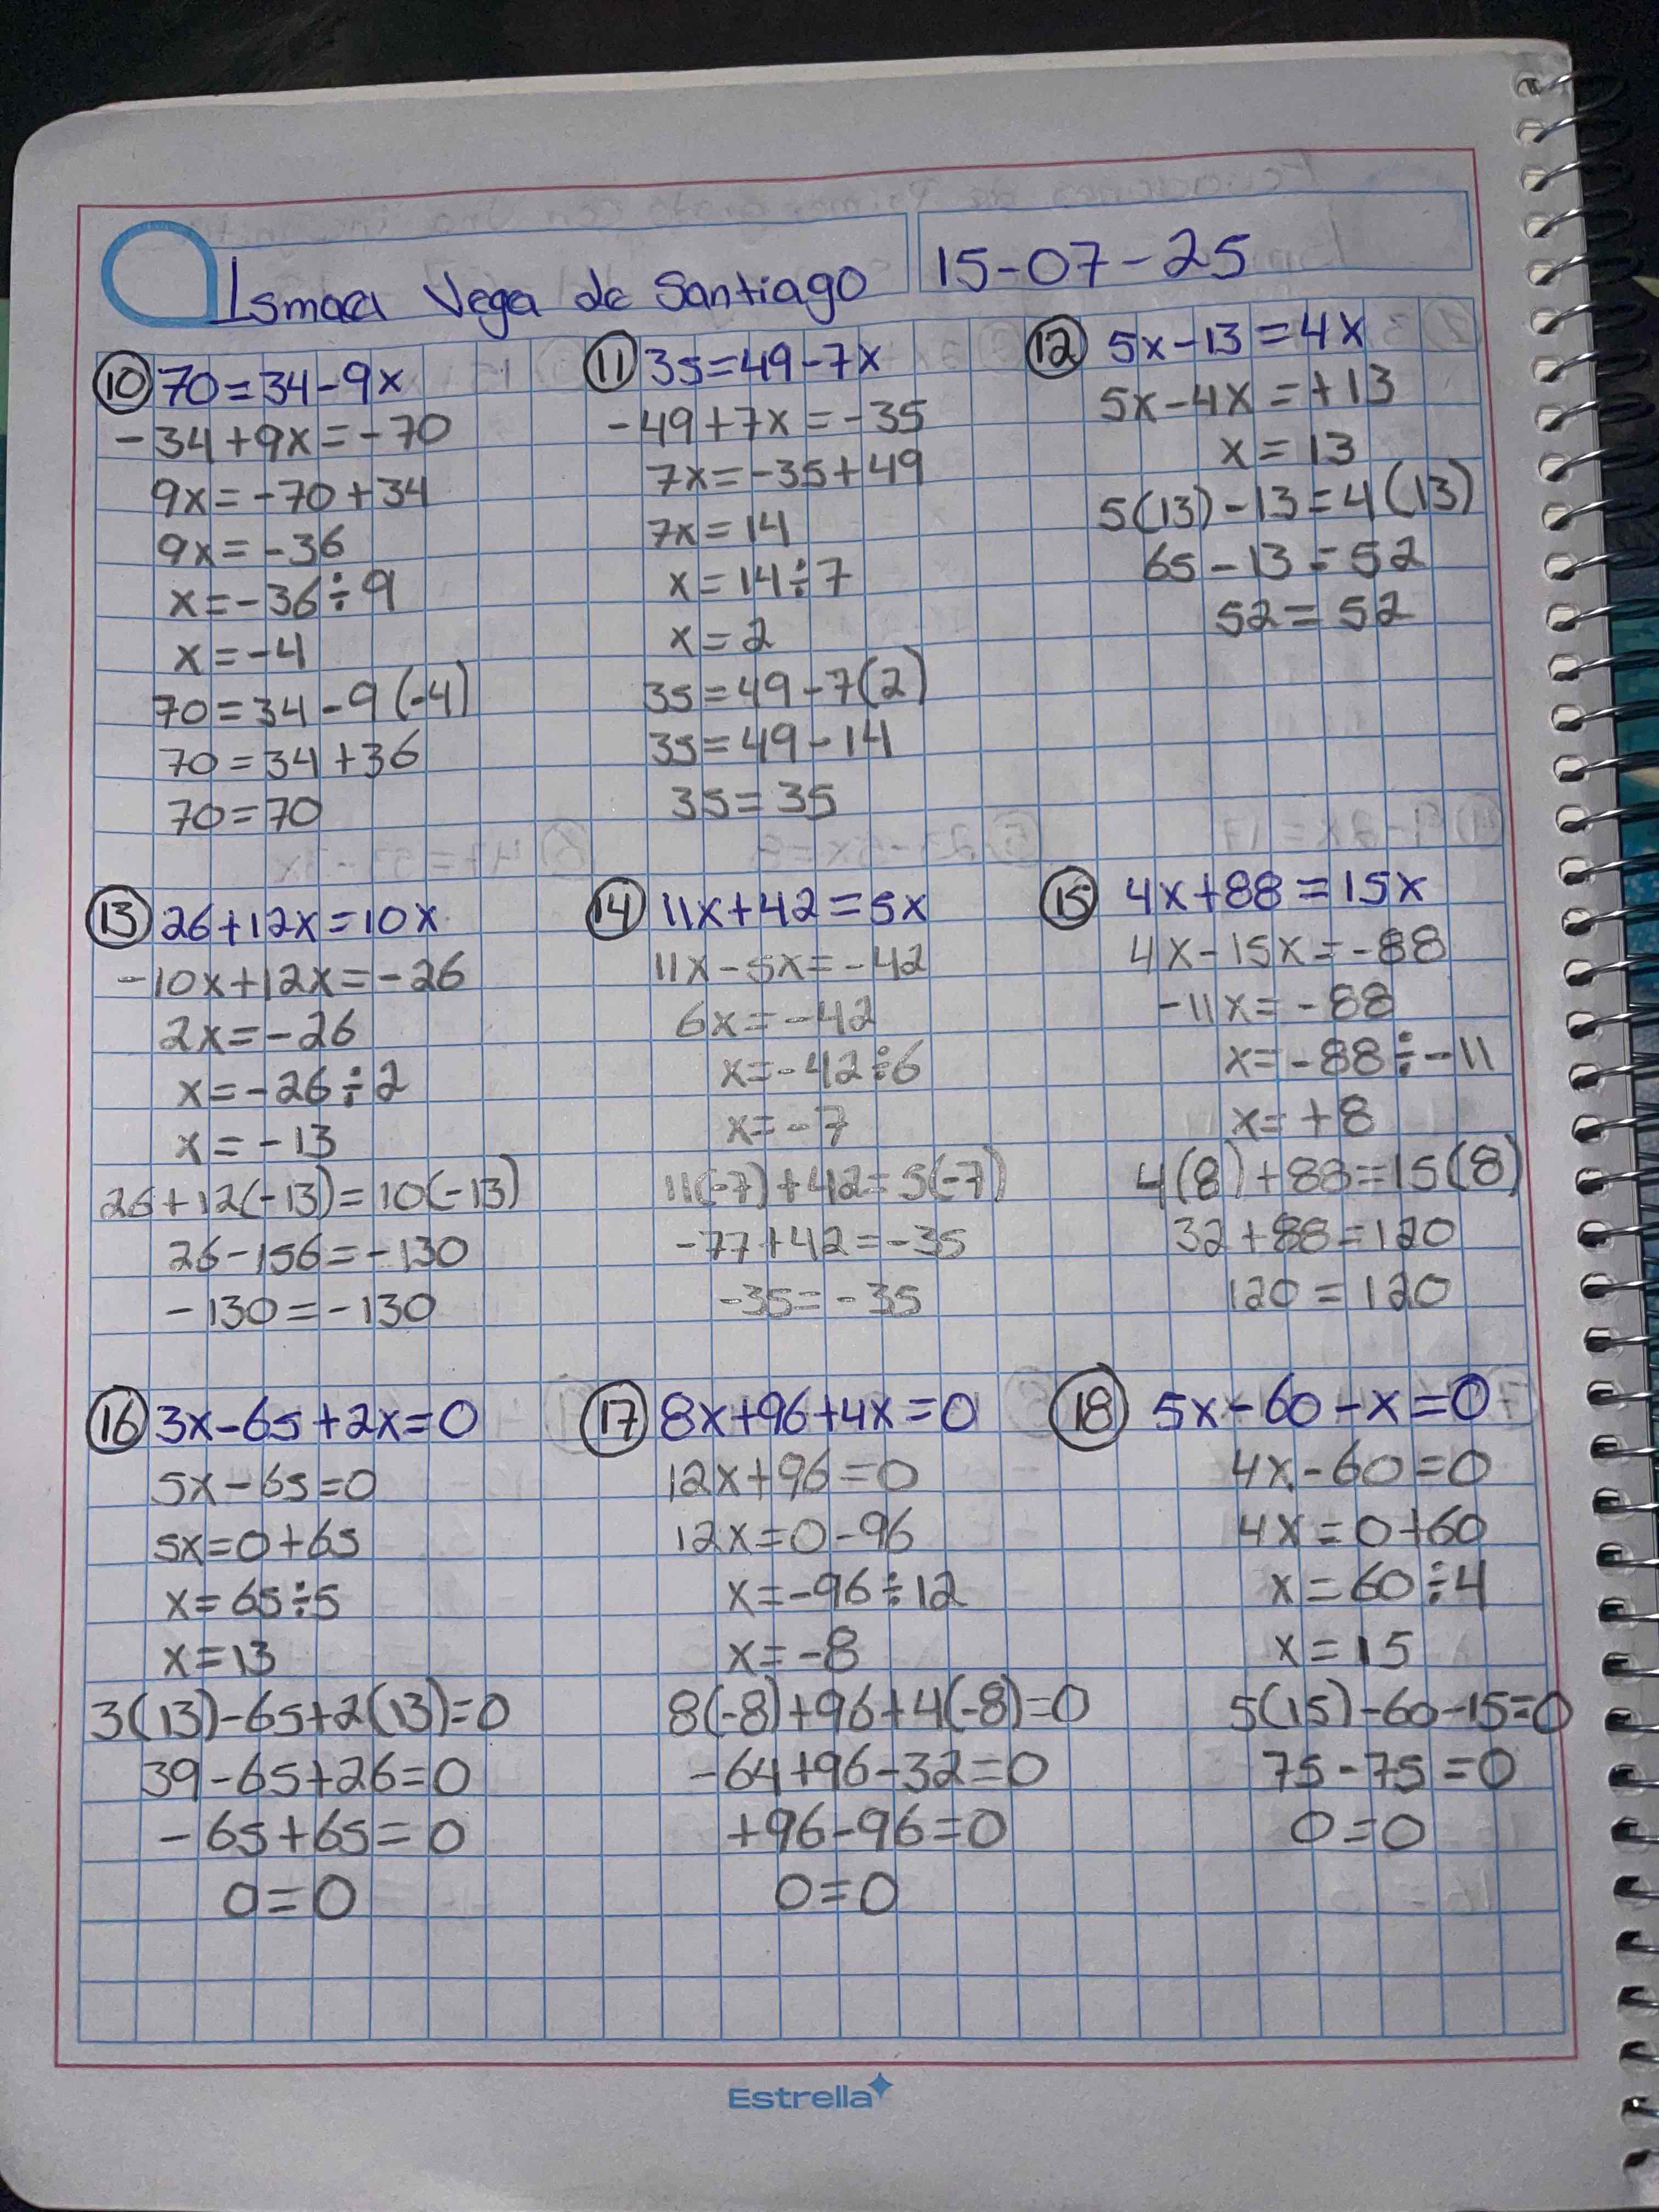 Ismael Vega de Santiago
15-07-25
⑩ 70=34-9x
-34+9x=-70
9x=-70+34
9x=-36
x=-36÷9
x=-4
70=34-9(-4)
70=34+36
70=70
⑪ 35=49-7x
-49+7x=-35
7x=-35+49
7x=14
x=14÷7
x=2
35=49-7(2)
35=49-14
35=35
⑫ 5x-13=4x
5x-4x=+13
x=13
5(13)-13=4(13)
65-13=52
52=52
⑬ 26+12x=10x
-10x+12x=-26
2x=-26
x=-26÷2
x=-13
26+12(-13)=10(-13)
26-156=-130
-130=-130
⑭ 11x+42=5x
11x-5x=-42
6x=-42
x=-42÷6
x=-7
11(-7)+42=5(-7)
-77+42=-35
-35=-35
⑮ 4x+88=15x
4x-15x=-88
-11x=-88
x=-88÷-11
x=+8
4(8)+88=15(8)
32+88=120
120=120
⑯ 3x-65+2x=0
5x-65=0
5x=0+65
x=65÷5
x=13
3(13)-65+2(13)=0
39-65+26=0
-65+65=0
0=0
⑰ 8x+96+4x=0
12x+96=0
12x=0-96
x=-96÷12
x=-8
8(-8)+96+4(-8)=0
-64+96-32=0
+96-96=0
0=0
⑱ 5x-60-x=0
4x-60=0
4x=0+60
x=60÷4
x=15
5(15)-60-15=0
75-75=0
0=0
Estrella